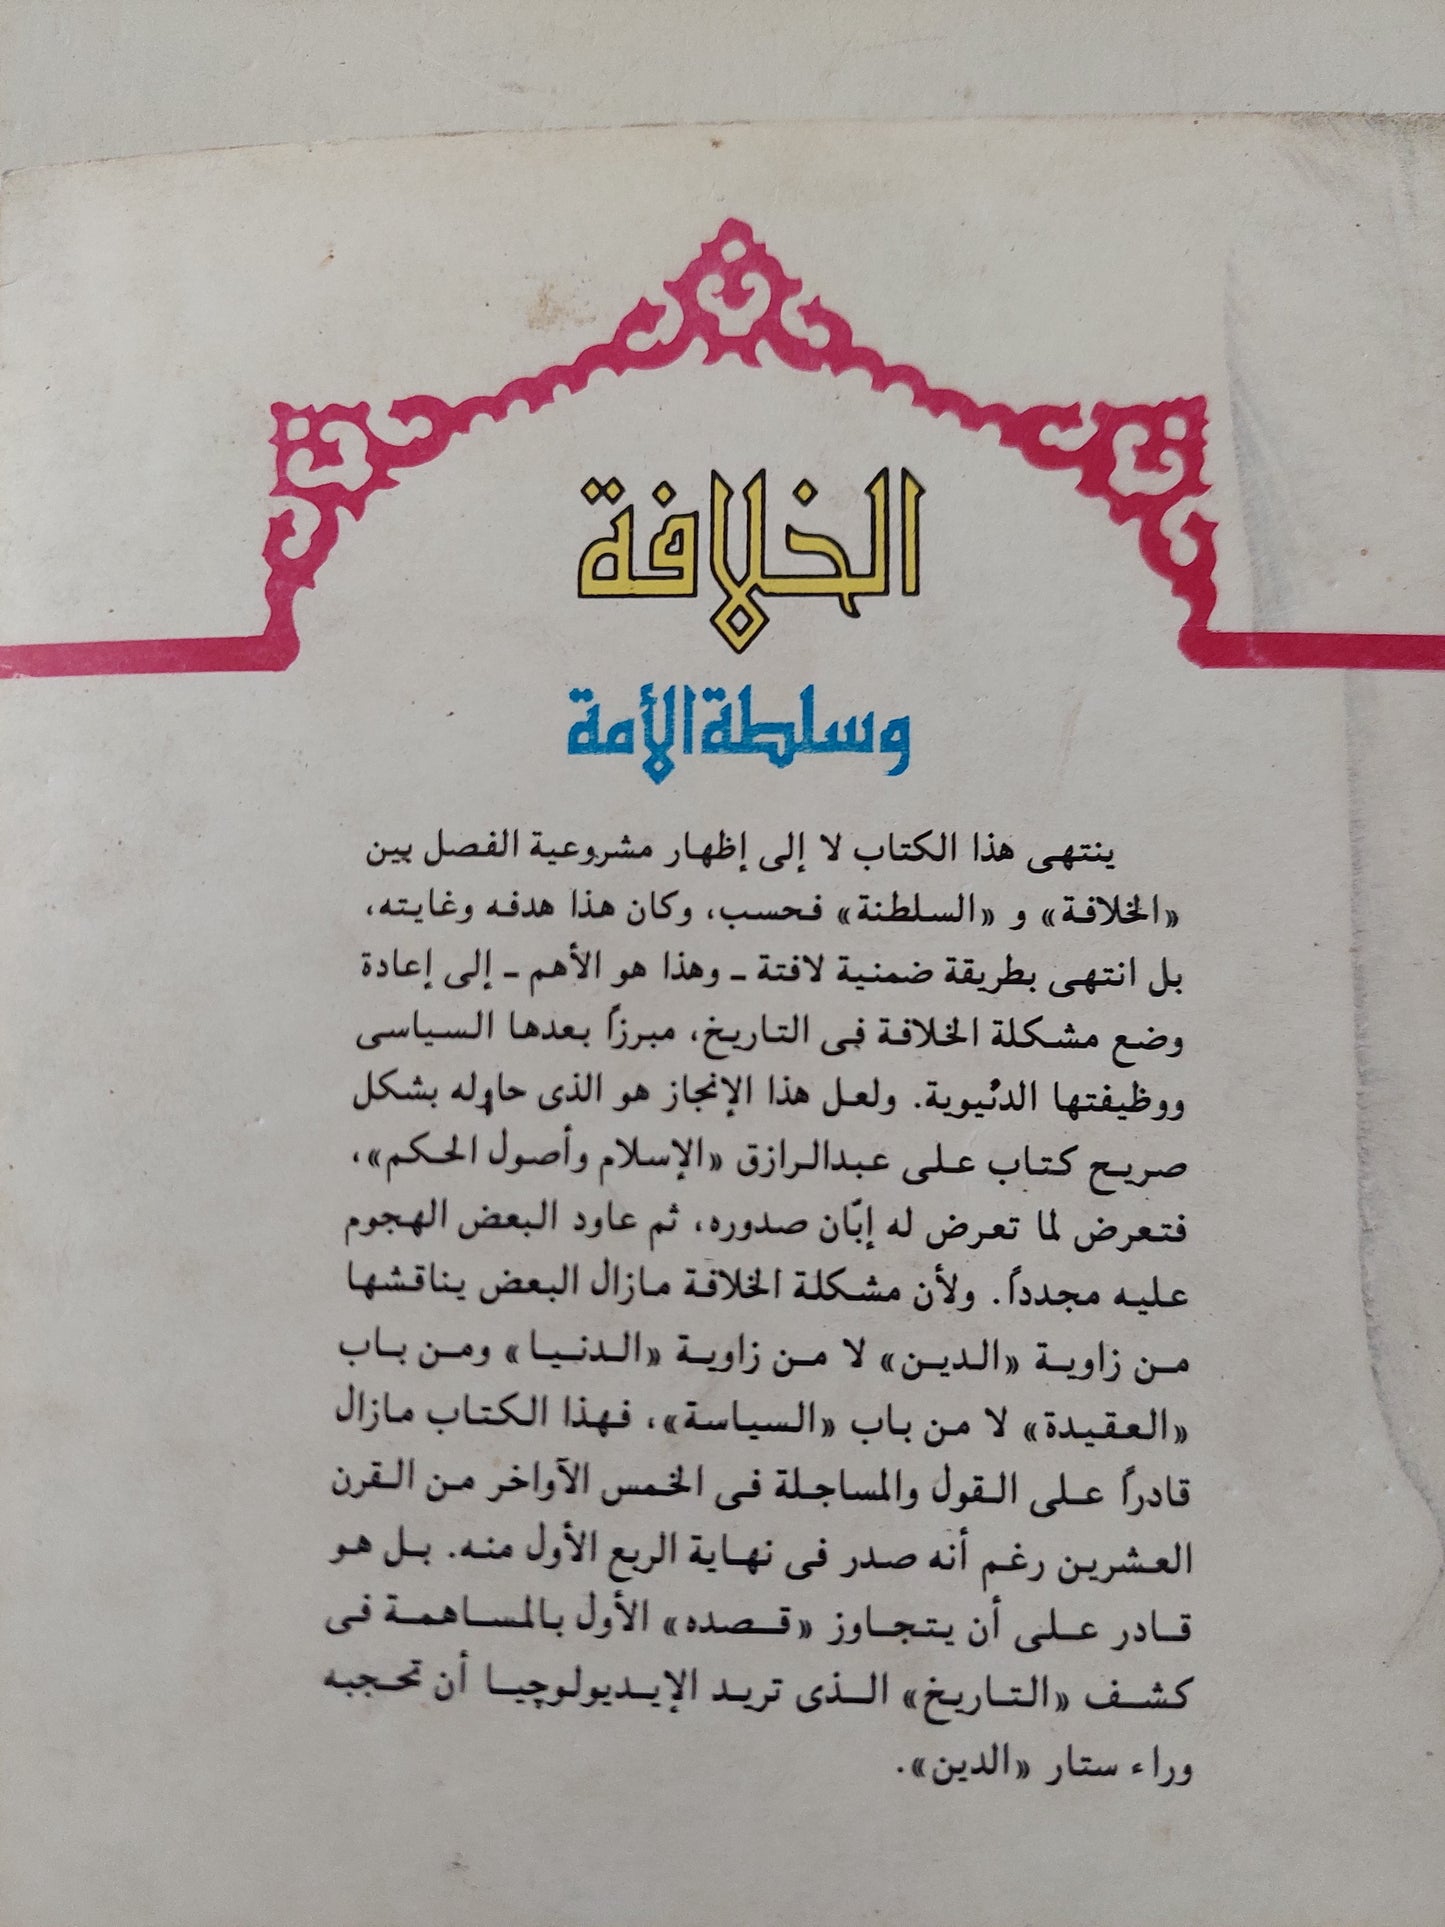 الخلافة
وسلطة الأمة
ينتهى هذا الكتاب لا إلى إظهار مشروعية الفصل بين
«الخلافة» و «السلطنة» فحسب، وكان هذا هدفه وغايته،
بل انتهى بطريقة ضمنية لافتة ـ وهذا هو الأهم ـ إلى إعادة
وضع مشكلة الخلافة فى التاريخ، مبرزاً بعدها السياسى
ووظيفتها الدنْيوية. ولعل هذا الإنجاز هو الذى حاوله بشكل
صريح كتاب على عبدالرازق «الإسلام وأصول الحكم»،
فتعرض لما تعرض له إبّان صدوره، ثم عاود البعض الهجوم
عليه مجدداً. ولأن مشكلة الخلافة مازال البعض يناقشها
من زاوية «الدين» لا من زاوية «الدنيا» ومن باب
«العقيدة» لا من باب «السياسة»، فهذا الكتاب مازال
قادراً على القول والمساجلة فى الخمس الآواخر من القرن
العشرين رغم أنه صدر فى نهاية الربع الأول منه. بل هو
قادر على أن يتجاوز «قصده» الأول بالمساهمة فى
كشف «التاريخ» الذى تريد الإيديولوچيا أن تحجبه
وراء ستار «الدين».